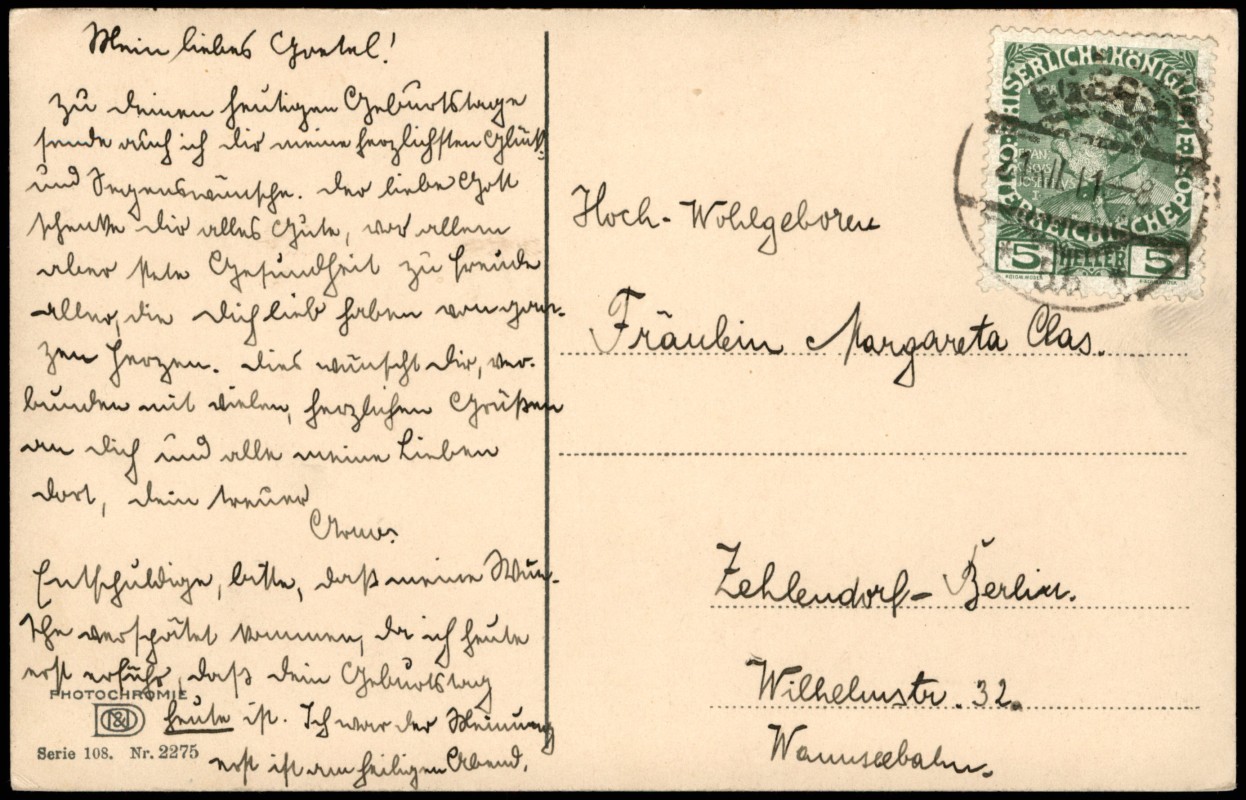 Mein liebes Gretel!
Zu deinem heutigen Geburtstage
sende auch ich dir meine herzlichsten Glück-
und Segenswünsche. Der liebe Gott
schenke dir alles Gute, vor allem
aber stete Gesundheit zu Freude
aller, die dich lieb haben von gan-
zen Herzen. Dies wünscht dir, ver-
bunden mit vielen, herzlichen Grüßen
an dich und alle meine Lieben
dort, dein treuer
Entschuldige, bitte, daß meine Wün-
sche verspätet kommen, da ich heute
erst erfuhr, daß dein Geburtstag
heute ist. Ich war der Meinung
erst ist am heiligen Abend.
PHOTOCHROMIE
D&N
Serie 108. Nr. 2275
KAISERLICHE KÖNIGLICHE
ÖSTERREICHISCHE POST
5 HELLER 5
Hoch-Wohlgeboren
Fräulein Margareta Clas.
Zehlendorf-Berlin.
Wilhelmstr. 32.
Wannseebahn.